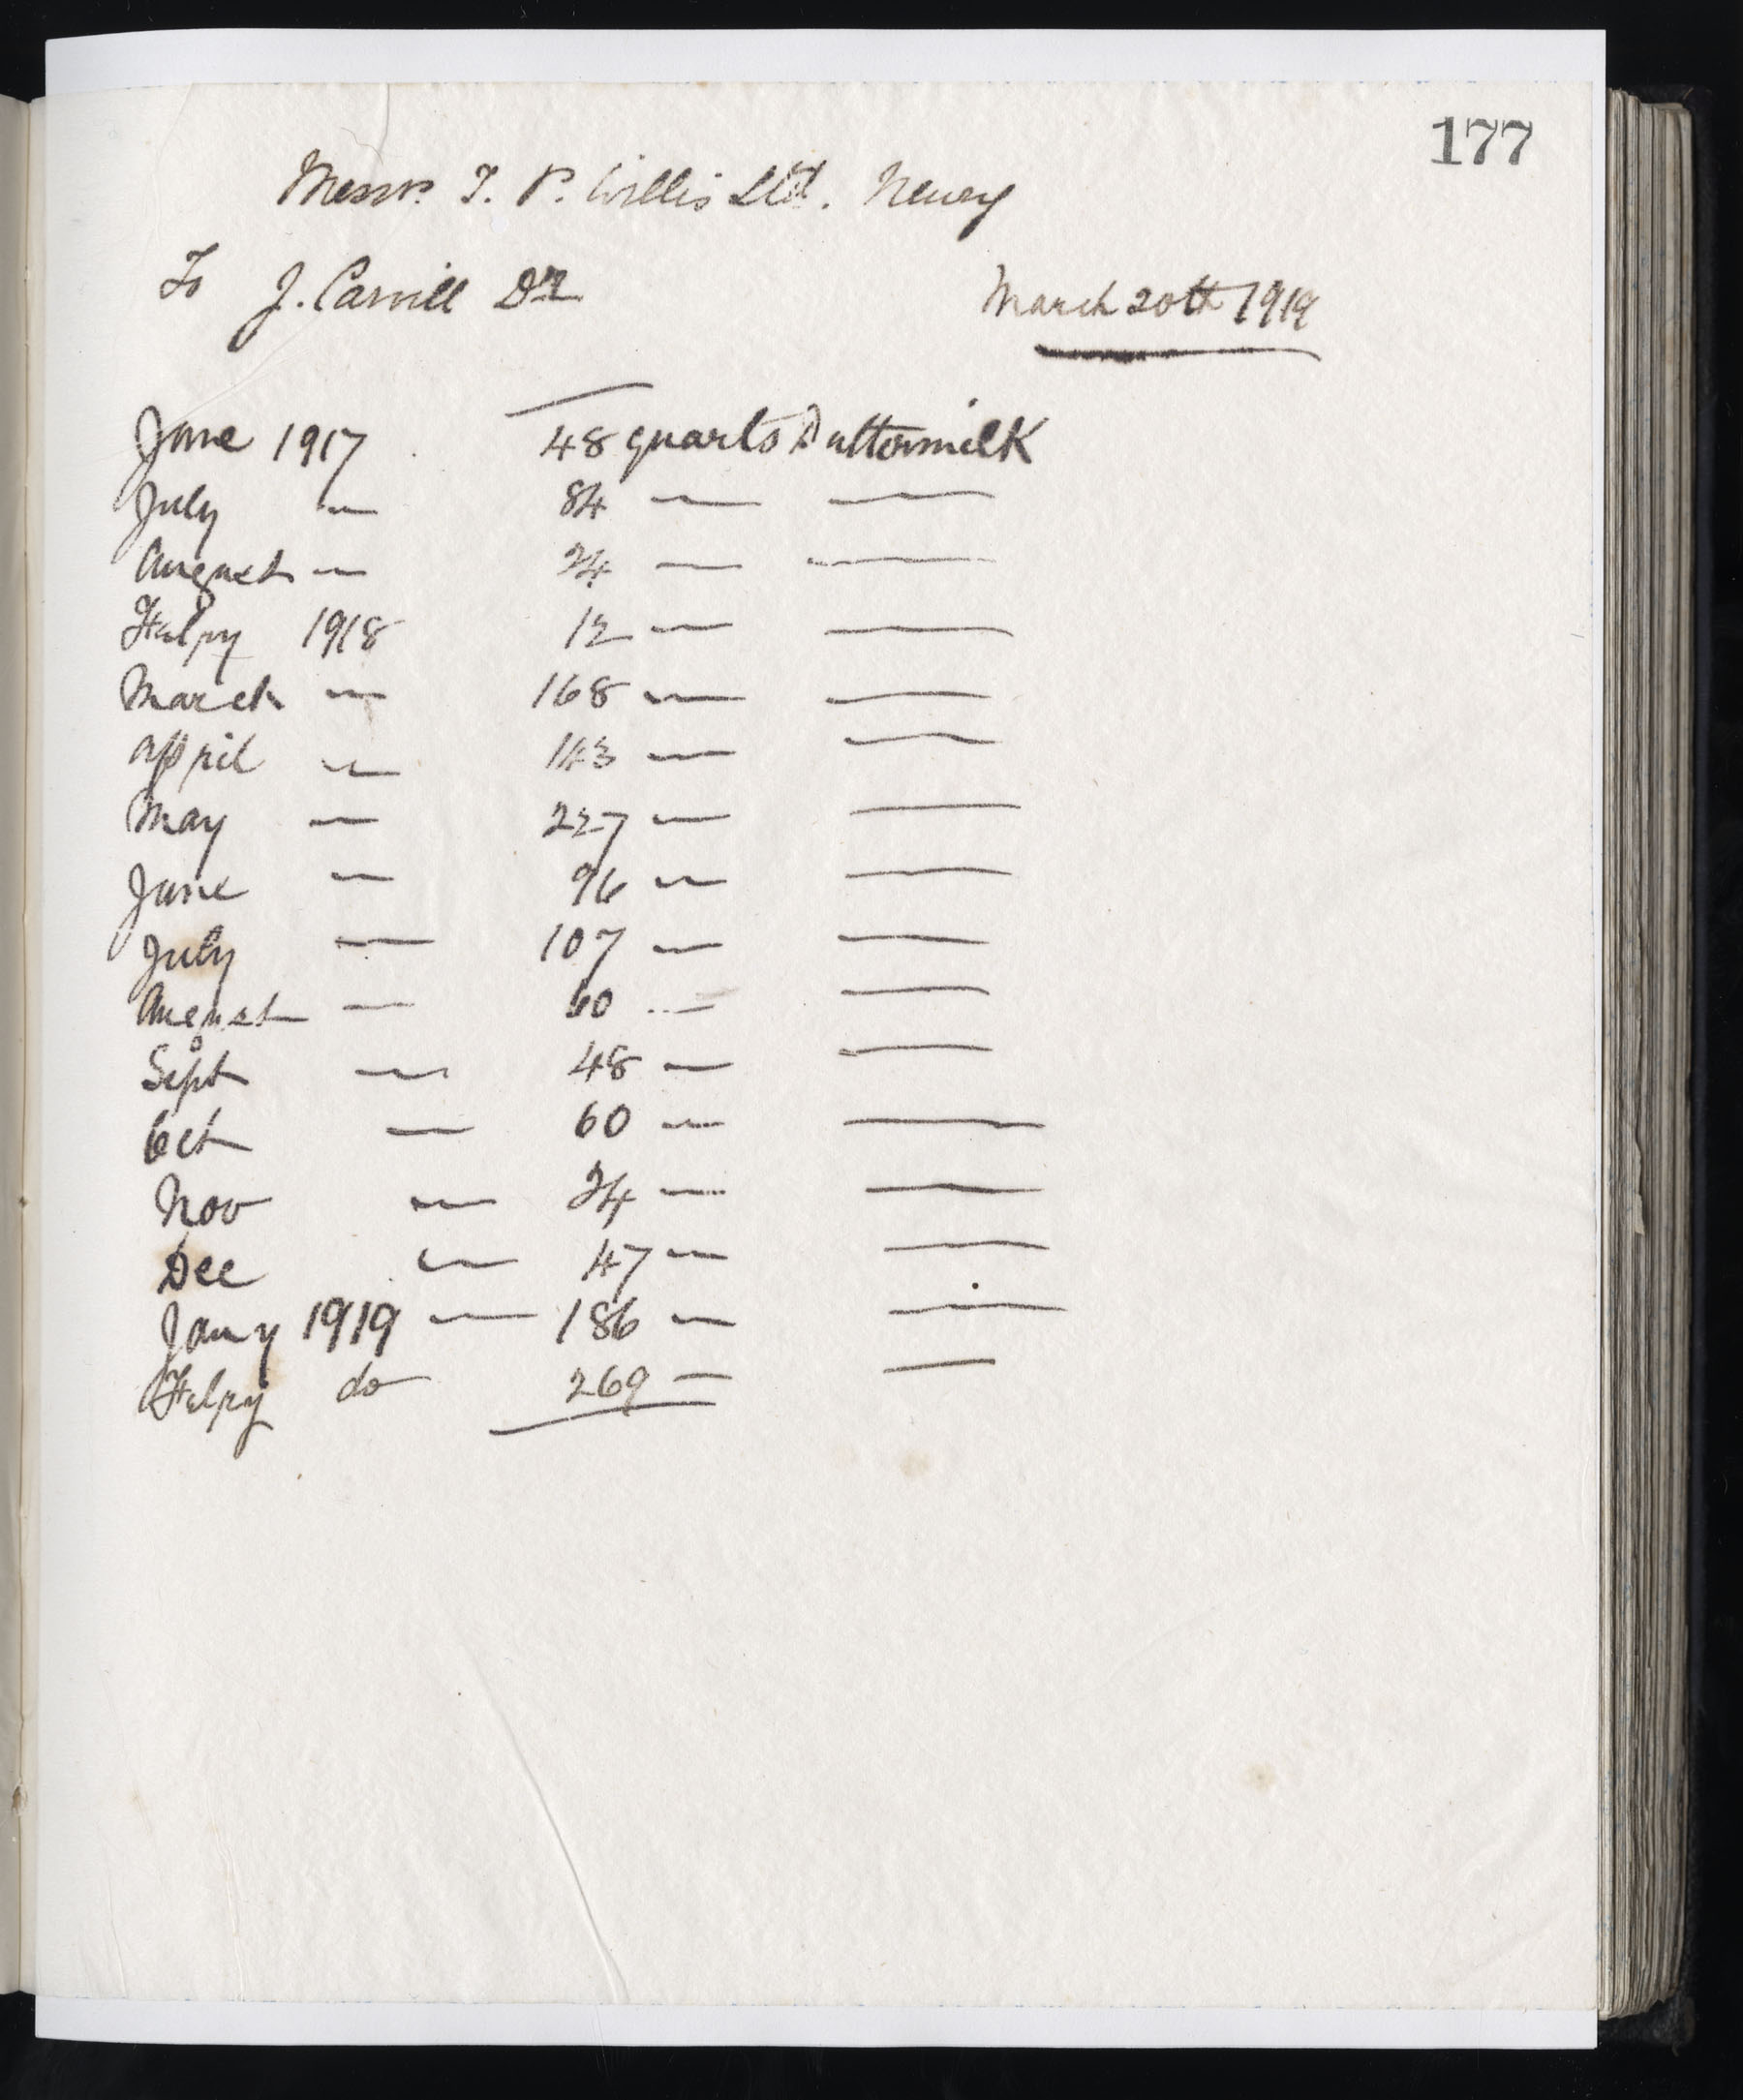 177
Messrs. T. P. Willis Ltd. Newry
To J. Carvill Dr
March 20th 1919
June 1917 48 quarts Buttermilk
July — 84 — —
August — 24 — —
Febry 1918 12 — —
March — 168 — —
April — 143 — —
May — 227 — —
June — 96 — —
July — 107 — —
August — 60 — —
Sept — 48 — —
Oct — 60 — —
Nov — 24 — —
Dec — 47 — —
Jany 1919 — 186 — —
Febry do 269 — —